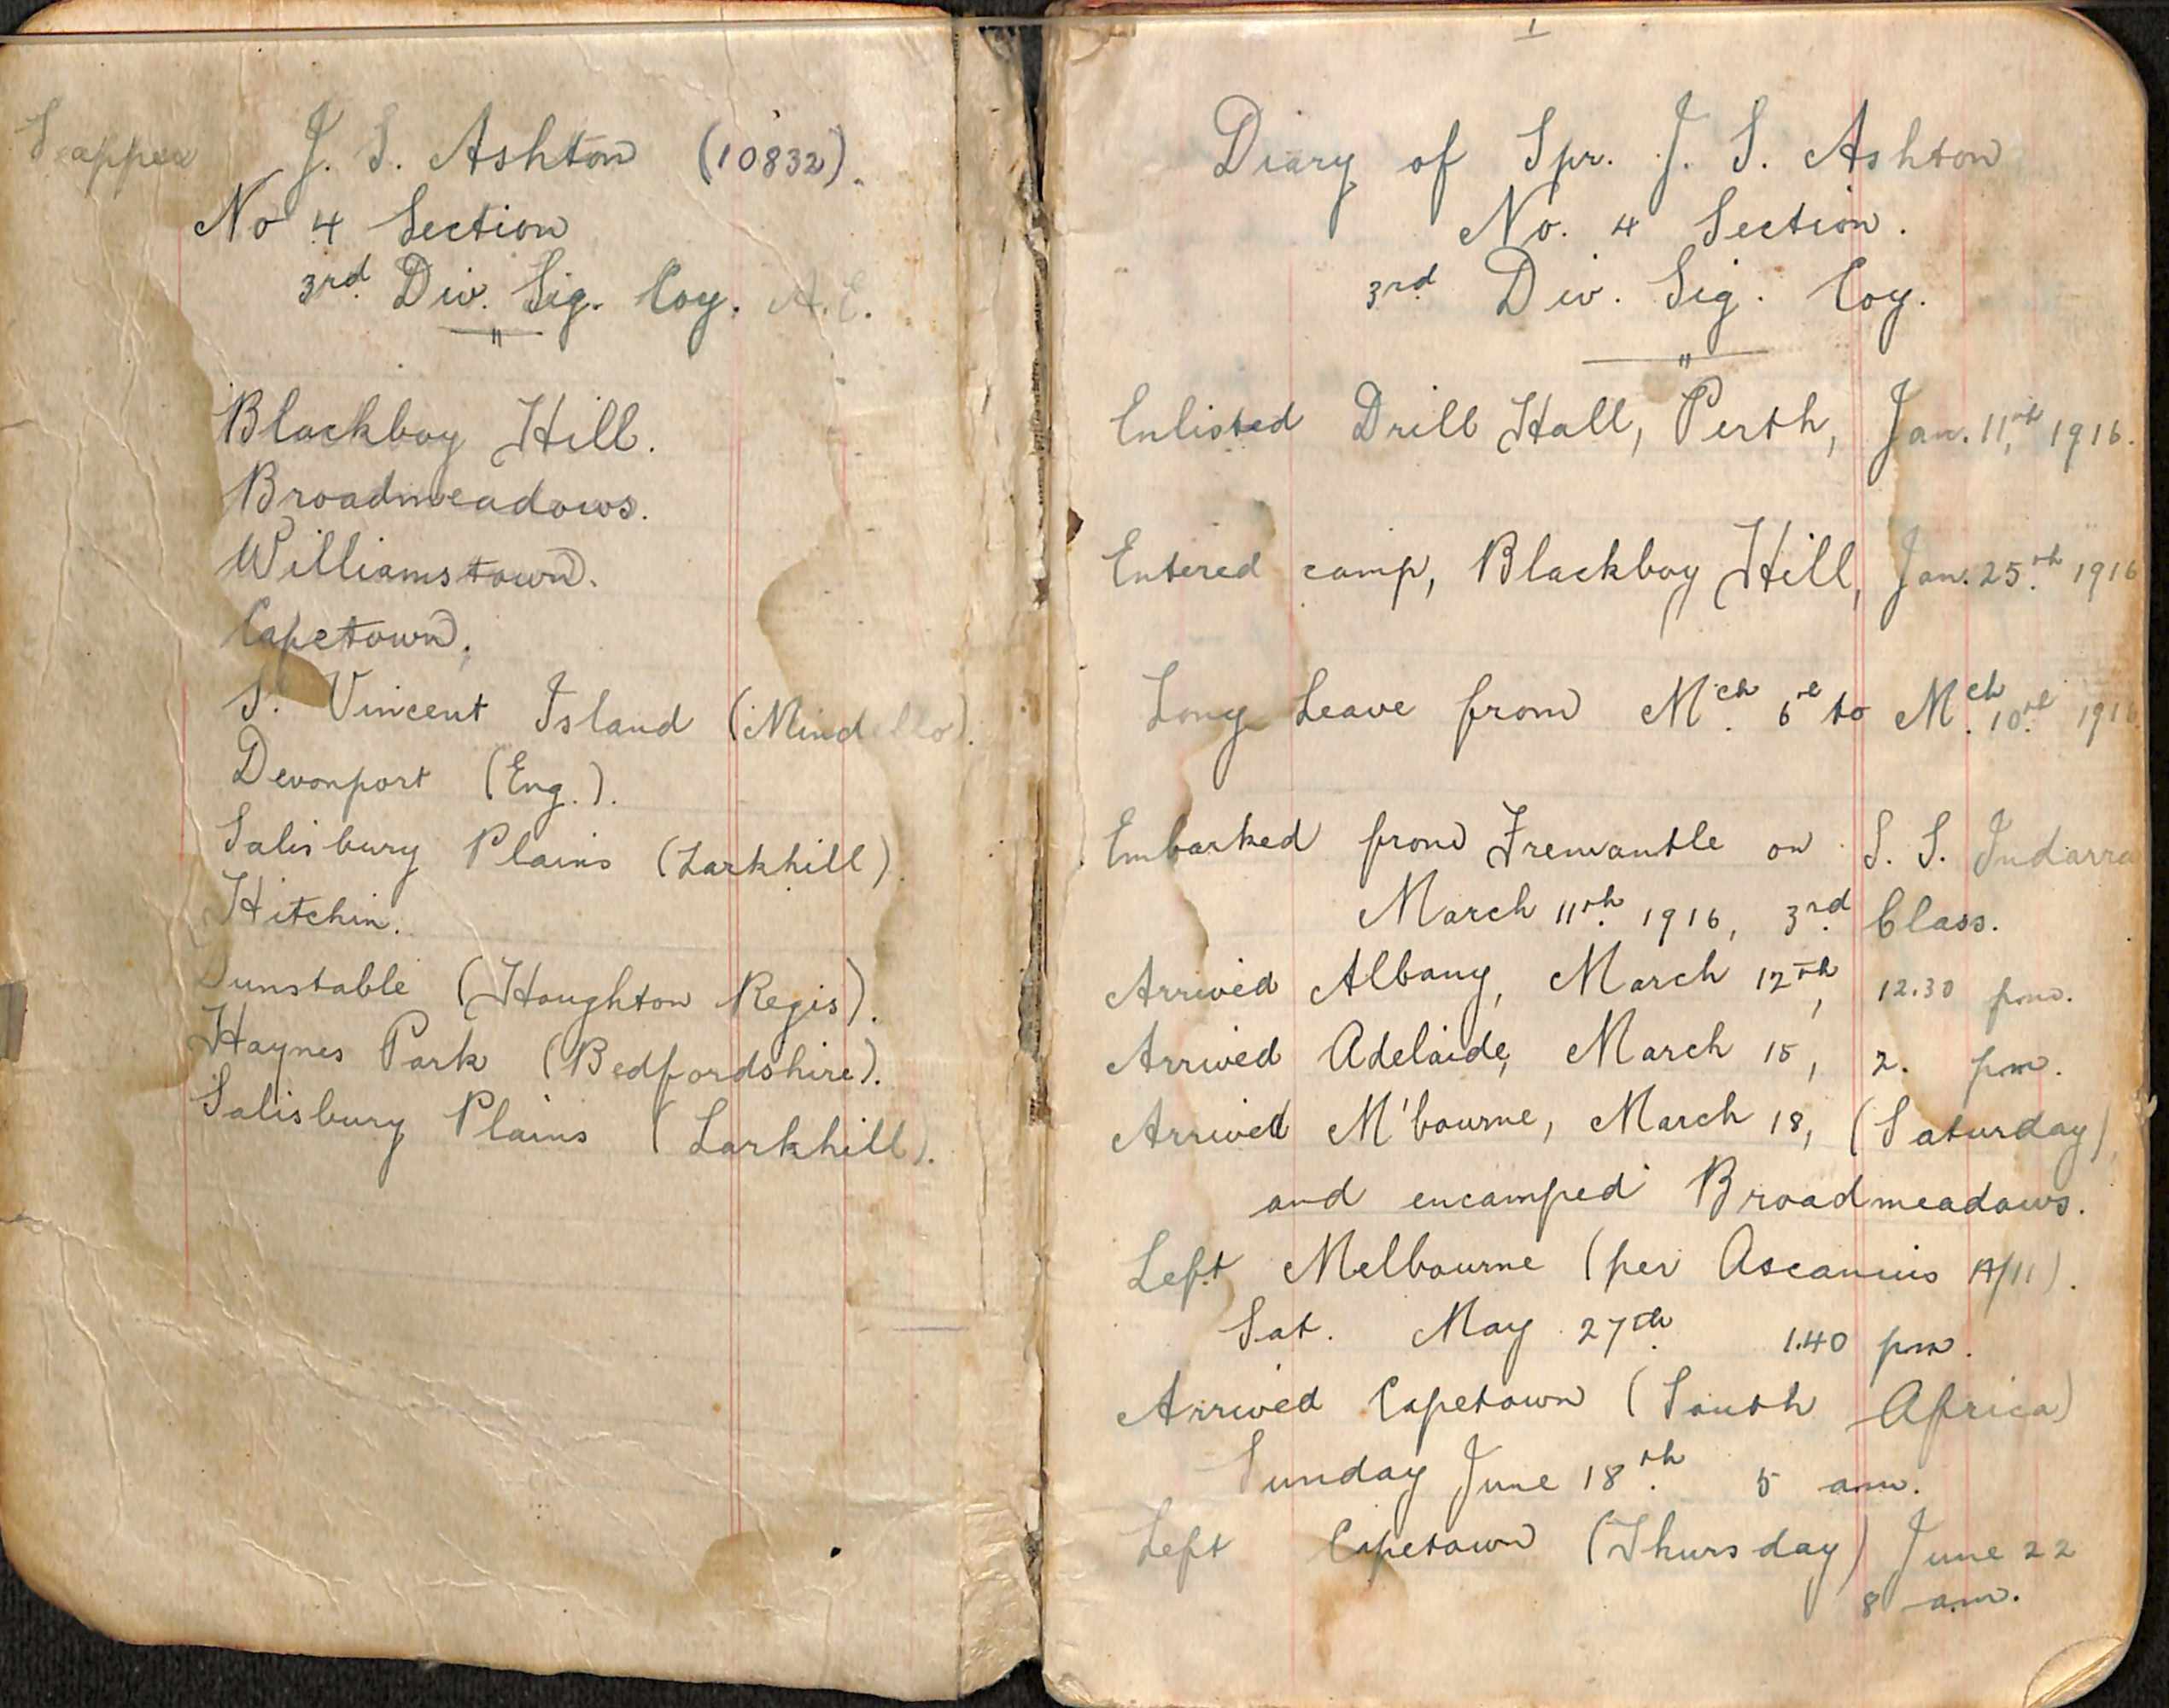 Sapper J. S. Ashton (10832).
No 4 Section
3rd. Div. Sig. Coy. A.E.
"
Blackboy Hill.
Broadmeadows.
Williamstown.
Capetown.
S. Vincent Island (Mindello).
Devonport (Eng.).
Salisbury Plains (Larkhill).
Hitchin.
Dunstable (Houghton Regis).
Haynes Park (Bedfordshire).
Salisbury Plains (Larkhill).
1
Diary of Spr. J. S. Ashton
No. 4 Section.
3rd. Div. Sig. Coy.
"
Enlisted Drill Hall, Perth, Jan. 11th, 1916.
Entered camp, Blackboy Hill, Jan. 25th. 1916
Long Leave from Mch. 6th to Mch. 10th. 1916
Embarked from Fremantle on S. S. Indarra
March 11th. 1916, 3rd. Class.
Arrived Albany, March 12th, 12.30 pm.
Arrived Adelaide, March 15, 2. pm.
Arrived M'bourne, March 18, (Saturday)
and encamped Broadmeadows.
Left Melbourne (per Ascanius A/11).
Sat. May 27th. 1.40 pm.
Arrived Capetown (South Africa)
Sunday June 18th. 5 am.
Left Capetown (Thursday) June 22
8 a.m.